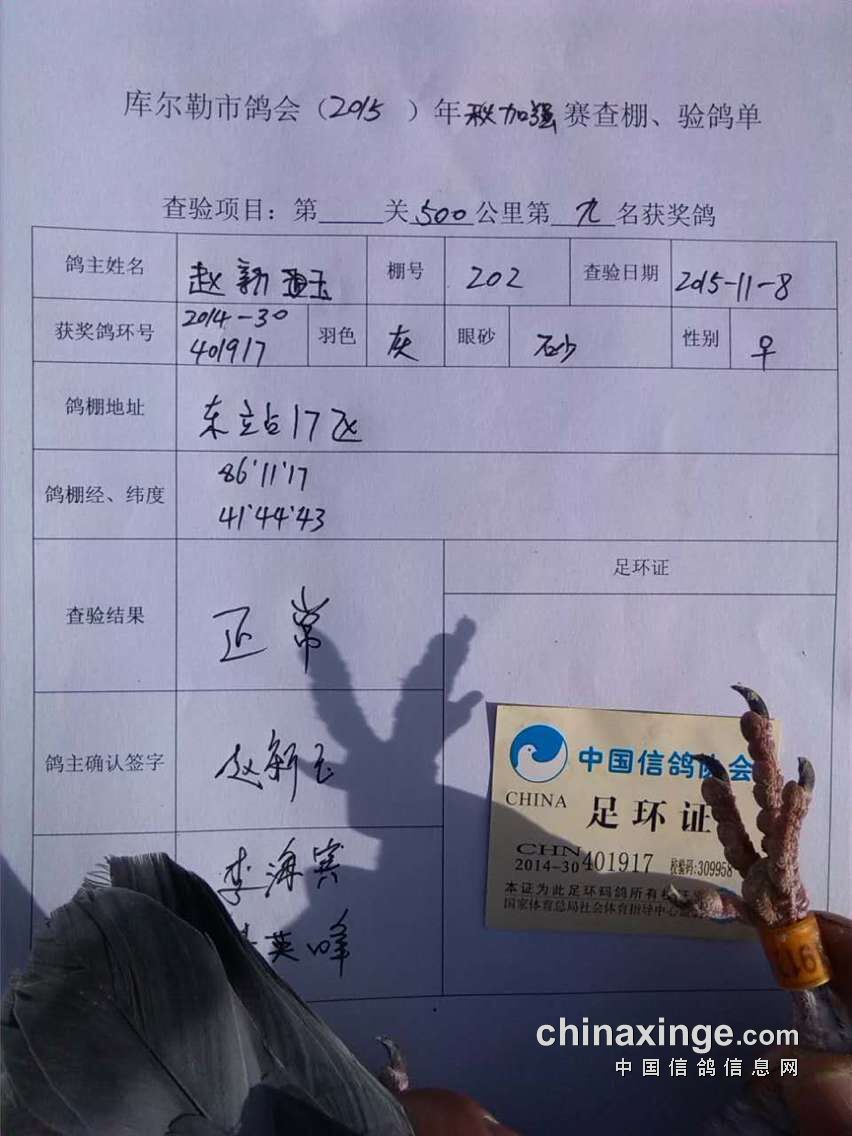 库尔勒市鸽会（2015 ）年秋加强赛查棚、验鸽单
查验项目：第____关500公里第 九 名获奖鸽
鸽主姓名 赵新玉 棚号 202 查验日期 2015-11-8
获奖鸽环号 2014-30 401917 羽色 灰 眼砂 砂 性别 ♀
鸽棚地址 东立占17
鸽棚经、纬度 86°11'17
41°44'43
查验结果 正常
足环证
鸽主确认签字 赵新玉
李海宾
英峰
中国信鸽协会
CHINA 足环证
CHN
2014-30 401917 检验码:309958
本证为此足环码鸽所有
国家体育总局社会体育指导中心
917
chinaxinge.com
中国信鸽信息网